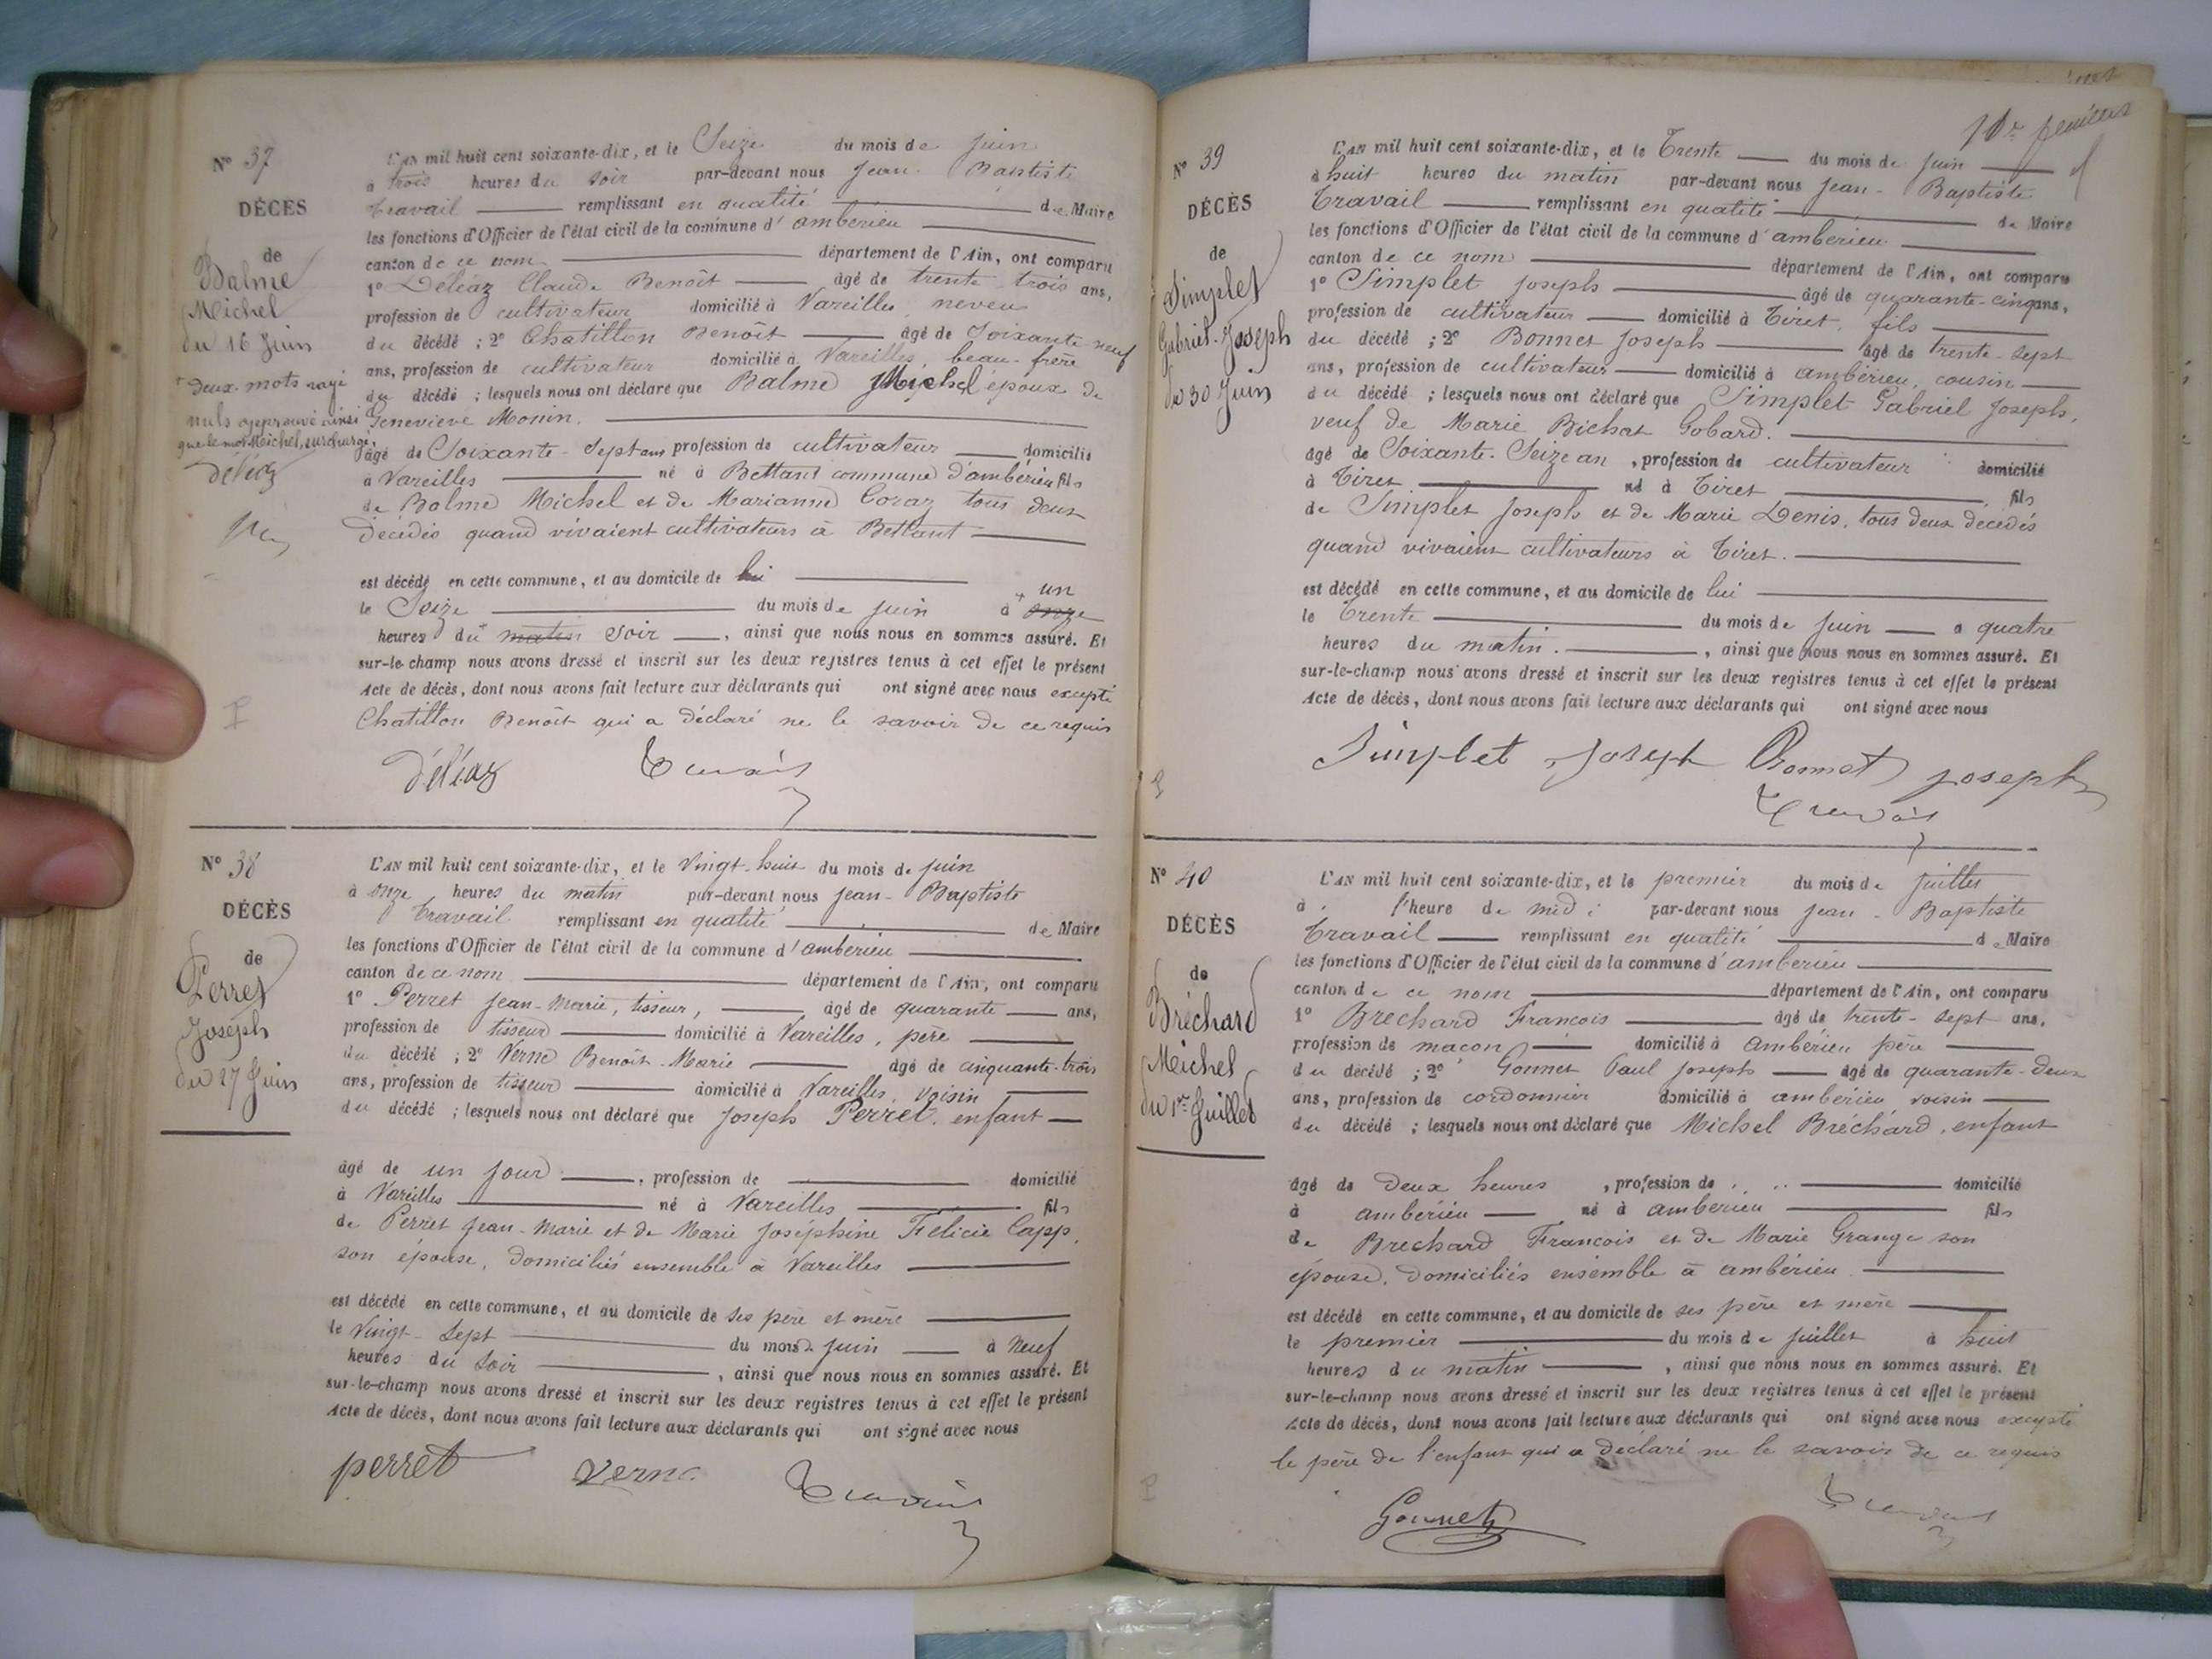 N° 37
DÉCÈS
de
Balme
Michel
du 16 Juin
deux mots rayé
nuls approuvé ainsi
que le mot Michel, surchargé,
déléaz
L'AN mil huit cent soixante-dix, et le Seize du mois de juin
à trois heures du soir par-devant nous Jean-Baptiste
Travail remplissant en qualité de Maire
les fonctions d'Officier de l'état civil de la commune d'ambérieu
canton de ce nom département de l'Ain, ont comparu
1° Déléaz Claude Benoît âgé de trente-trois ans,
profession de cultivateur domicilié à Vareilles, neveu
du décédé ; 2° Chatillon Benoît âgé de Soixante neuf
ans, profession de cultivateur domicilié à Vareilles, beau-frère
du décédé ; lesquels nous ont déclaré que Balme Michel époux de
Geneviève Monin.
âgé de Soixante-Sept ans profession de cultivateur domicilié
à Vareilles né à Bettant commune d'ambérieu fils
de Balme Michel et de Marianne Coraz tous deux
décédés quand vivaient cultivateurs à Bettant
est décédé en cette commune, et au domicile de lui
un
le Seize du mois de juin à + onze
heures du matin soir, ainsi que nous nous en sommes assuré. Et
sur-le-champ nous avons dressé et inscrit sur les deux registres tenus à cet effet le présent
Acte de décès, dont nous avons fait lecture aux déclarants qui ont signé avec nous excepté
Chatillon Benoît qui a déclaré ne le savoir de ce requis
Déléaz Travail
N° 38
DÉCÈS
de
Perret
Joseph
du 27 Juin
L'AN mil huit cent soixante-dix, et le Vingt-huit du mois de juin
à onze heures du matin par-devant nous Jean-Baptiste
Travail remplissant en qualité de Maire
les fonctions d'Officier de l'état civil de la commune d'ambérieu
canton de ce nom département de l'Ain, ont comparu
1° Perret Jean-Marie, tisseur, âgé de quarante ans,
profession de tisseur domicilié à Vareilles, père
du décédé ; 2° Verne Benoît-Marie âgé de cinquante-trois
ans, profession de tisseur domicilié à Vareilles, voisin
du décédé ; lesquels nous ont déclaré que Joseph Perret, enfant
âgé de un jour, profession de domicilié
à Vareilles né à Vareilles fils
de Perret Jean-Marie et de Marie Joséphine Félicie Capp,
son épouse, domiciliés ensemble à Vareilles
est décédé en cette commune, et au domicile de ses père et mère
le Vingt-Sept du mois de juin à neuf
heures du soir, ainsi que nous nous en sommes assuré. Et
sur-le-champ nous avons dressé et inscrit sur les deux registres tenus à cet effet le présent
Acte de décès, dont nous avons fait lecture aux déclarants qui ont signé avec nous
perret Verne Travail
N° 39
DÉCÈS
de
Simplet
Gabriel-Joseph
du 30 Juin
L'AN mil huit cent soixante-dix, et le Trente du mois de juin
à huit heures du matin par-devant nous Jean-Baptiste
Travail remplissant en qualité de Maire
les fonctions d'Officier de l'état civil de la commune d'ambérieu
canton de ce nom département de l'Ain, ont comparu
1° Simplet Joseph âgé de quarante-cinq ans,
profession de cultivateur domicilié à Tiret, fils
du décédé ; 2° Bonnet Joseph âgé de trente-sept
ans, profession de cultivateur domicilié à ambérieu, cousin
du décédé ; lesquels nous ont déclaré que Simplet Gabriel Joseph,
veuf de Marie Bichat Gobard.
âgé de Soixante-Seize an, profession de cultivateur domicilié
à Tiret né à Tiret fils
de Simplet Joseph et de Marie Denis, tous deux décédés
quand vivaient cultivateurs à Tiret.
est décédé en cette commune, et au domicile de lui
le Trente du mois de juin à quatre
heures du matin., ainsi que nous nous en sommes assuré. Et
sur-le-champ nous avons dressé et inscrit sur les deux registres tenus à cet effet le présent
Acte de décès, dont nous avons fait lecture aux déclarants qui ont signé avec nous
Simplet Joseph Bonnet joseph
Travail
N° 40
DÉCÈS
de
Bréchard
Michel
du 1er Juillet
L'AN mil huit cent soixante-dix, et le premier du mois de juillet
à l'heure de midi par-devant nous Jean-Baptiste
Travail remplissant en qualité de Maire
les fonctions d'Officier de l'état civil de la commune d'ambérieu
canton de ce nom département de l'Ain, ont comparu
1° Brechard François âgé de trente-sept ans,
profession de maçon domicilié à Ambérieu père
du décédé ; 2° Gonnet Paul Joseph âgé de quarante-deux
ans, profession de cordonnier domicilié à ambérieu voisin
du décédé ; lesquels nous ont déclaré que Michel Bréchard, enfant
âgé de deux heures, profession de domicilié
à ambérieu né à ambérieu fils
de Brechard François et de Marie Grange son
épouse, domiciliés ensemble à ambérieu
est décédé en cette commune, et au domicile de ses père et mère
le premier du mois de juillet à huit
heures du matin, ainsi que nous nous en sommes assuré. Et
sur-le-champ nous avons dressé et inscrit sur les deux registres tenus à cet effet le présent
Acte de décès, dont nous avons fait lecture aux déclarants qui ont signé avec nous excepté
le père de l'enfant qui a déclaré ne le savoir de ce requis
Gonnet Travail